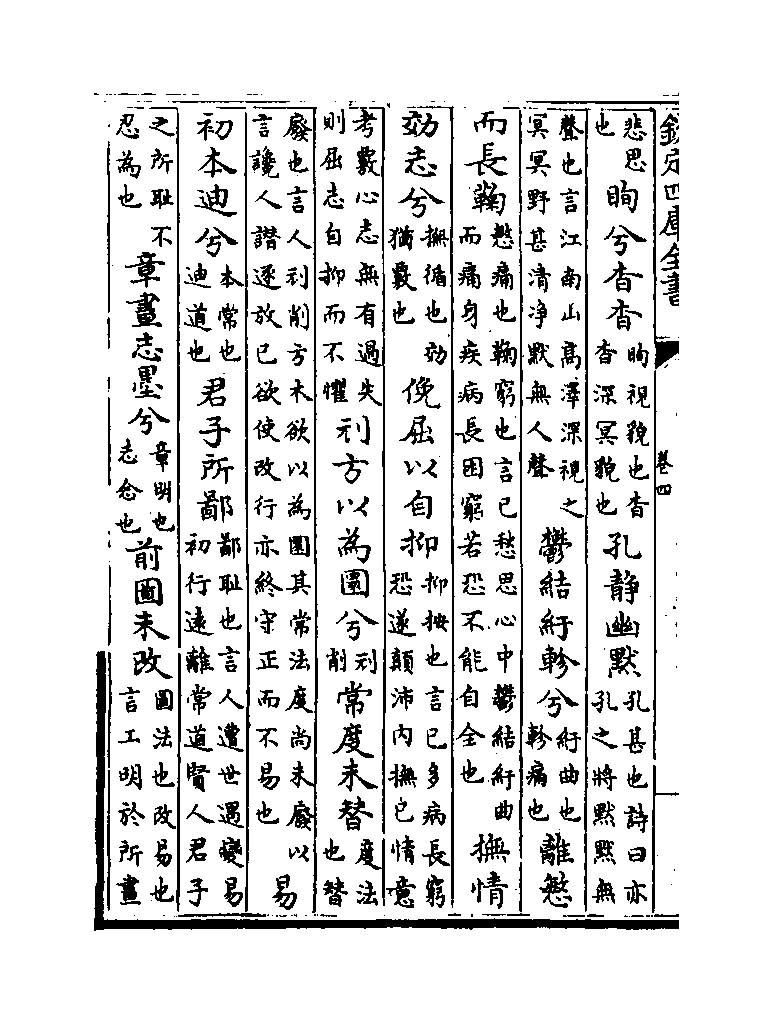 欽定四庫全書
卷四
悲思也眴兮杳杳眴視貌也杳杳深冥貌也孔靜幽默孔甚也詩曰亦孔之將默默無
聲也言江南山高澤深視之冥冥野甚清净默無人聲鬱結紆軫兮紆曲也軫痛也離慜
而長鞠慜痛也鞠窮也言已愁思心中鬱結紆曲而痛身疾病長困窮若恐不能自全也撫情
効志兮撫循也効猶覈也俛屈以自抑抑按也言已多病長窮恐遂顛沛内撫已情意
考覈心志無有過失則屈志自抑而不懼刓方以為圜兮刓削常度未替度法也替
廢也言人刓削方木欲以為圜其常法度尚未廢以言讒人譛逐放已欲使改行亦終守正而不易也易
初本迪兮本常也迪道也君子所鄙鄙耻也言人遭世遇變易初行逺離常道賢人君子
之所耻不忍為也章畫志墨兮章明也志念也前圖未改圖法也改易也言工明於所畫